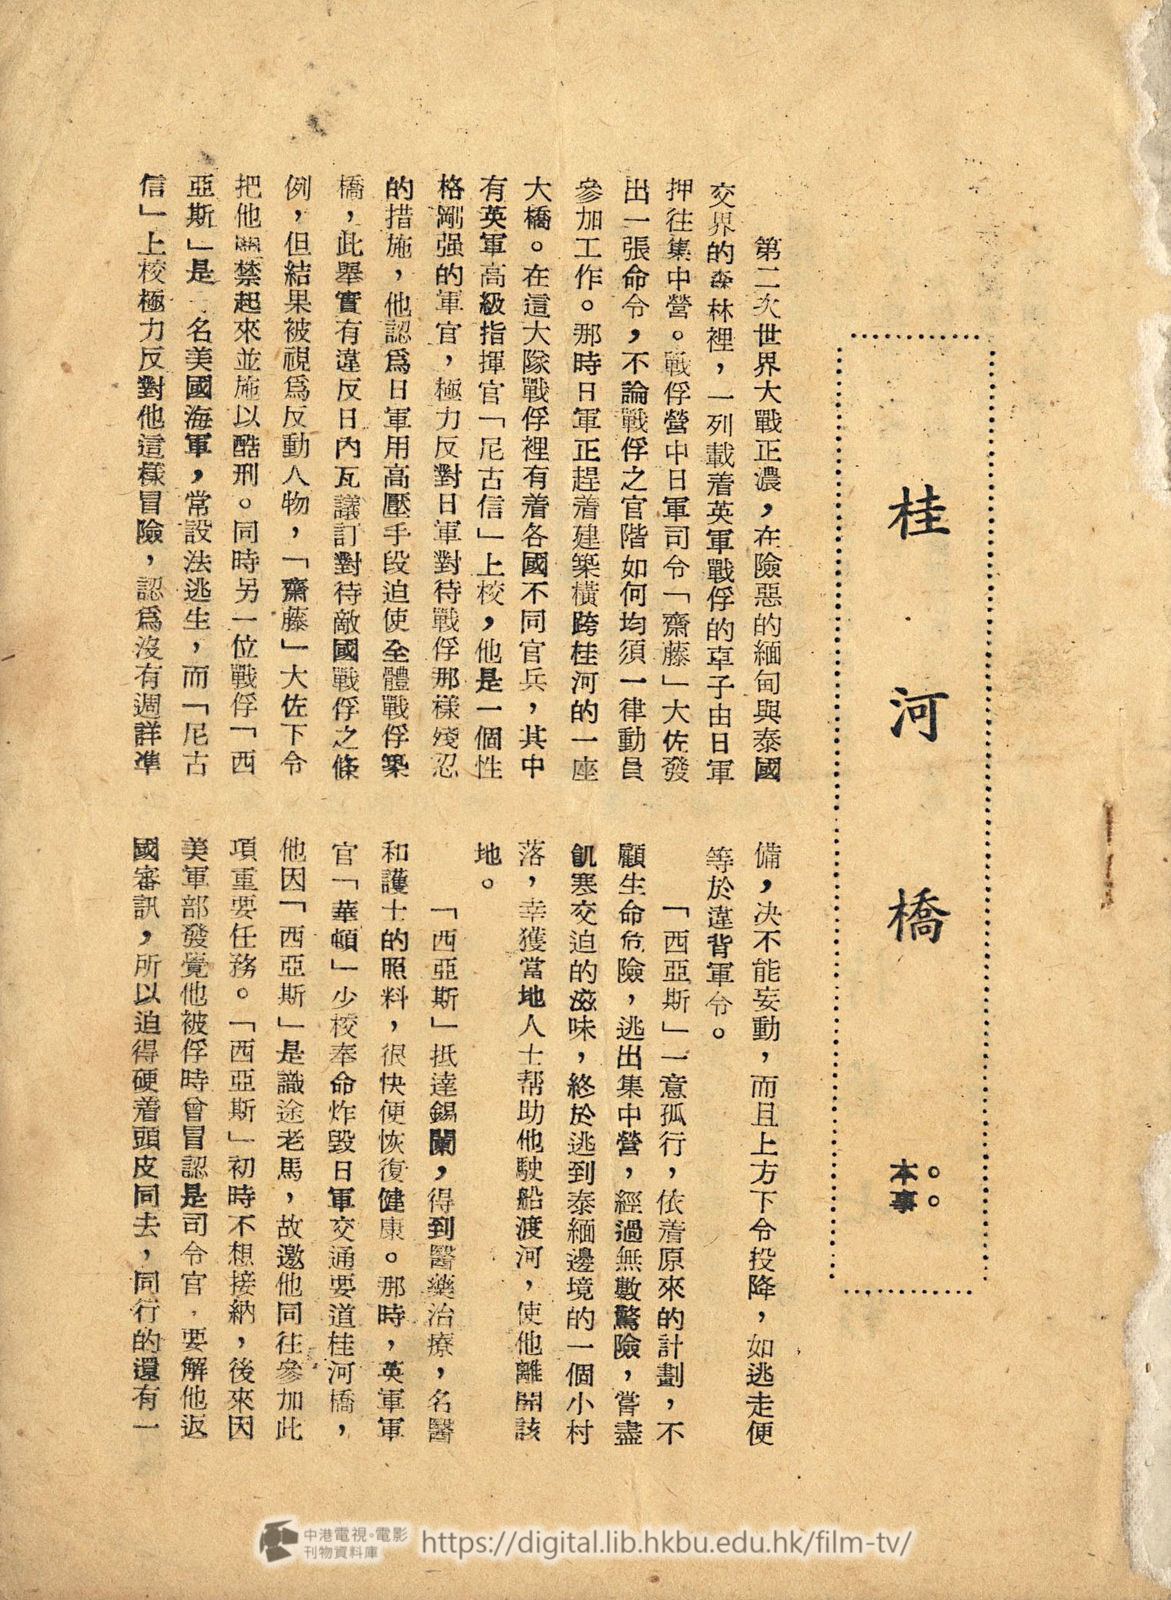 桂河橋
本事
第二次世界大戰正濃，在險惡的緬甸與泰國
交界的森林裡，一列載着英軍戰俘的車子由日軍
押往集中營。戰俘營中日軍司令「齋藤」大佐發
出一張命令，不論戰俘之官階如何均須一律動員
參加工作。那時日軍正趕着建築橫跨桂河的一座
大橋。在這大隊戰俘裡有着各國不同官兵，其中
有英軍高級指揮官「尼古信」上校，他是一個性
格剛强的軍官，極力反對日軍對待戰俘那樣殘忍
的措施，他認爲日軍用高壓手段迫使全體戰俘築
橋，此舉實有違反日內瓦議訂對待敵國戰俘之條
例，但結果被視爲反動人物，「齋藤」大佐下令
把他關禁起來並施以酷刑。同時另一位戰俘「西
亞斯」是一名美國海軍，常設法逃生，而「尼古
信」上校極力反對他這樣冒險，認爲沒有週詳準
備，决不能妄動，而且上方下令投降，如逃走便
等於違背軍令。
「西亞斯」一意孤行，依着原來的計劃，不
顧生命危險，逃出集中營，經過無數驚險，嘗盡
飢寒交迫的滋味，終於逃到泰緬邊境的一個小村
落，幸獲當地人士帮助他駛船渡河，使他離開該
地。
「西亞斯」抵達錫蘭，得到醫藥治療，名醫
和護士的照料，很快便恢復健康。那時，英軍軍
官「華頓」少校奉命炸毀日軍交通要道桂河橋，
他因「西亞斯」是識途老馬，故邀他同往參加此
項重要任務。「西亞斯」初時不想接納，後來因
美軍部發覺他被俘時曾冒認是司令官，要解他返
國審訊，所以迫得硬着頭皮同去，同行的還有一
中港電視。電影
刊物資料庫
https://digital.lib.hkbu.edu.hk/film-tv/